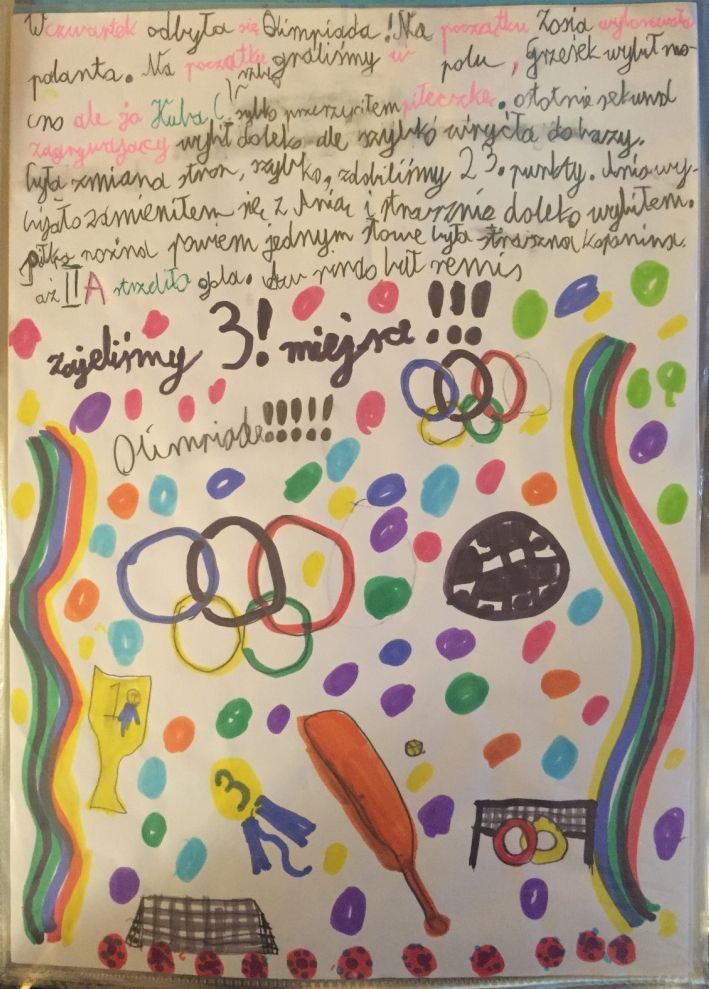 W czwartek odbyła się Olimpiada! Na początku Zosia wylosowała
palanta. Na początku graliśmy w polu, Grzesek wybił mo-
cno ale ja Kuba ( szybko przerzyciłem piłeczkę. sekund
zagrywający wybił doleko ale szybkó wrócyła do bazy.
była zmiana stron, szybko, zdobiliśmy 23. punkty. Ania wy-
zamieniłem się z Anią i strasznie doleko wybiłem.
piłka nożna powiem jednym słowe była straszna kopanina.
aż II A strzeliła gola. był remis
zajeliśmy 3! miejsce !!!
Olimpiada!!!!!
1
3